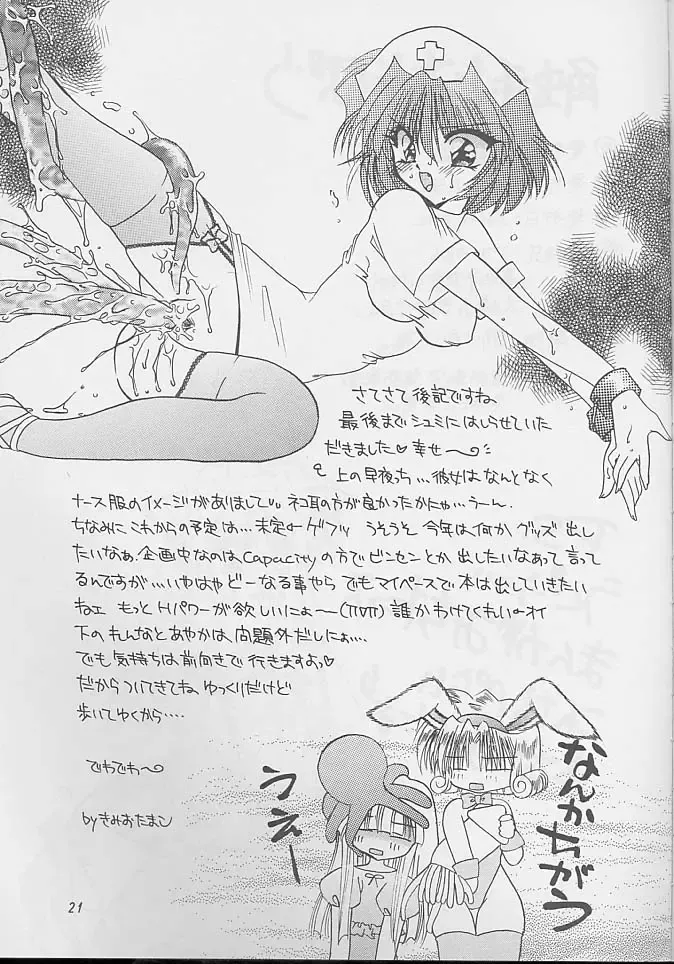 さてさて後記ですね
最後までシュミにはしらせていた
だきました♡幸せ〜
上の早夜っち…彼女はなんとなく
ナース服のイメージがありまして、ネコ耳の方が良かったかにゃ…うーん。
ちなみにこれからの予定は…未定←ゲフッ うそうそ 今年は何かグッズ出し
たいなぁ。企画中なのはCapacityの方でビンセンとか出したいなあって言って
るんですが…いやはやどーなる事やら でもマイペースで本は出していきたい
ねェ もっとHパワーが欲しいにょ〜 誰かわけてくれい←オイ
下のもんなとあやかは問題外だしにぉ…
でも気持ちは前向きで行きますよっ♡
だからついてきてね ゆっくりだけど
歩いてゆくから…
でわでわ〜
byきみおたまこ
なんかちがう
うえー
21